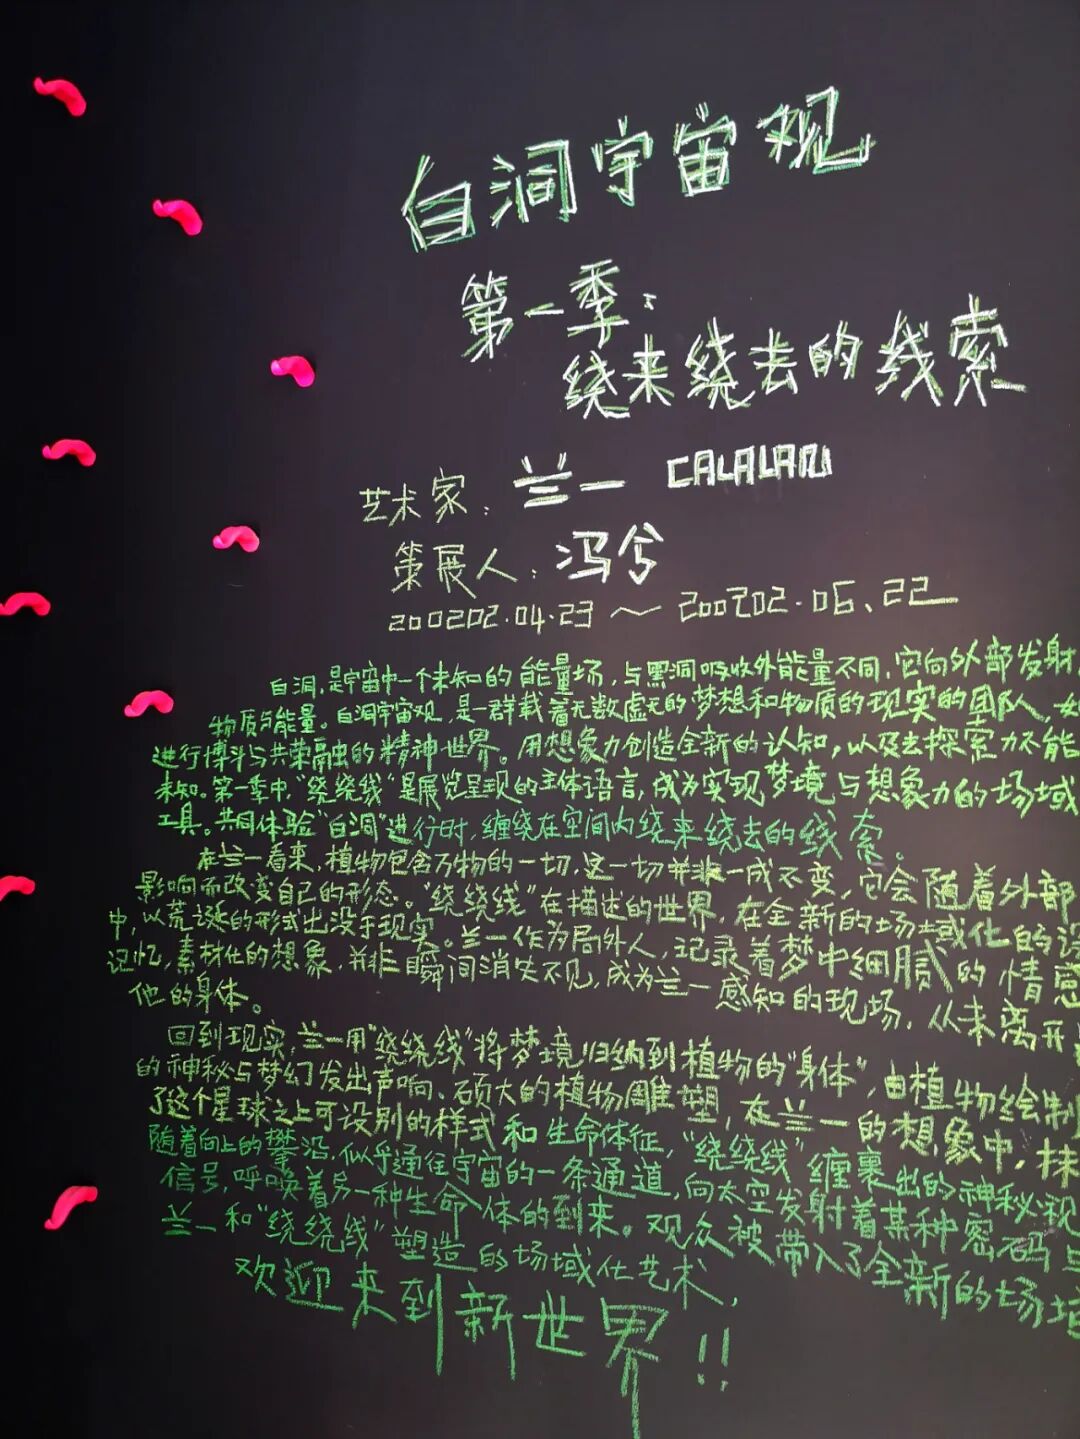 白洞宇宙观
第一季：
绕来绕去的线索
艺术家：兰一 CALALAN
策展人：冯兮
200202.04.23～200202.06.22
白洞，是宇宙中一个未知的能量场，与黑洞吸收外能量不同，它向外部发射
物质与能量。白洞宇宙观，是一群载着无数虚无的梦想和物质的现实的团队，
进行博斗与共荣融虫的精神世界。用想象力创造全新的认知，以及去探索力不能
未知。第一季中，“绕绕线”是展览呈现的主体语言，成为实现梦境与想象力的场域
工具。共同体验“白洞”进行时，缠绕在空间内绕来绕去的线索。
在兰一看来，植物包含万物的一切，这一切并非一成不变，它会随着外部
影响而改变自己的形态。“绕绕线”在描述的世界，在全新的场域化的
中，以荒诞的形式出没于现实。兰一作为局外人，记录着梦中细腻的情感
记忆，素材化的想象，并非瞬间消失不见，成为兰一感知的现场，从未离开
他的身体。
回到现实，兰一用“绕绕线”将梦境归纳到植物的“身体”，由植物绘制
的神秘与梦幻发出声响、硕大的植物雕塑，在兰一的想象中，抹
了这个星球之上可设别的样式和生命体征，“绕绕线”缠裹出的神秘视
随着向上的攀沿，似乎通往宇宙的一条通道，向太空发射着某种密码与
信号，呼唤着另一种生命体的到来。观众被带入了全新的场域
兰一和“绕绕线”塑造的场域化艺术，
欢迎来到新世界!!